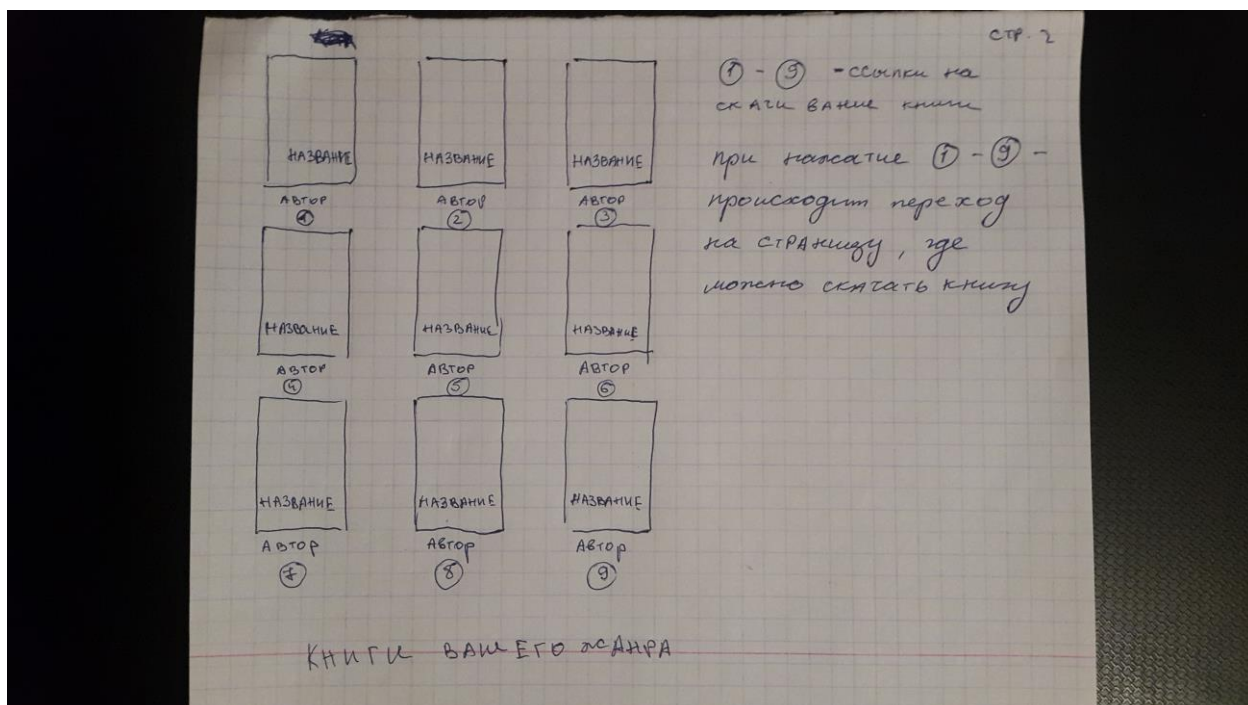 стр. 2
НАЗВАНИЕ НАЗВАНИЕ НАЗВАНИЕ
АВТОР АВТОР АВТОР
1 2 3
НАЗВАНИЕ НАЗВАНИЕ НАЗВАНИЕ
АВТОР АВТОР АВТОР
4 5 6
НАЗВАНИЕ НАЗВАНИЕ НАЗВАНИЕ
АВТОР АВТОР АВТОР
7 8 9
КНИГИ ВАШЕГО ЖАНРА
1 - 9 - ссылки на
скачивание книги
при нажатие 1 - 9 -
происходит переход
на страницу, где
можно скачать книгу